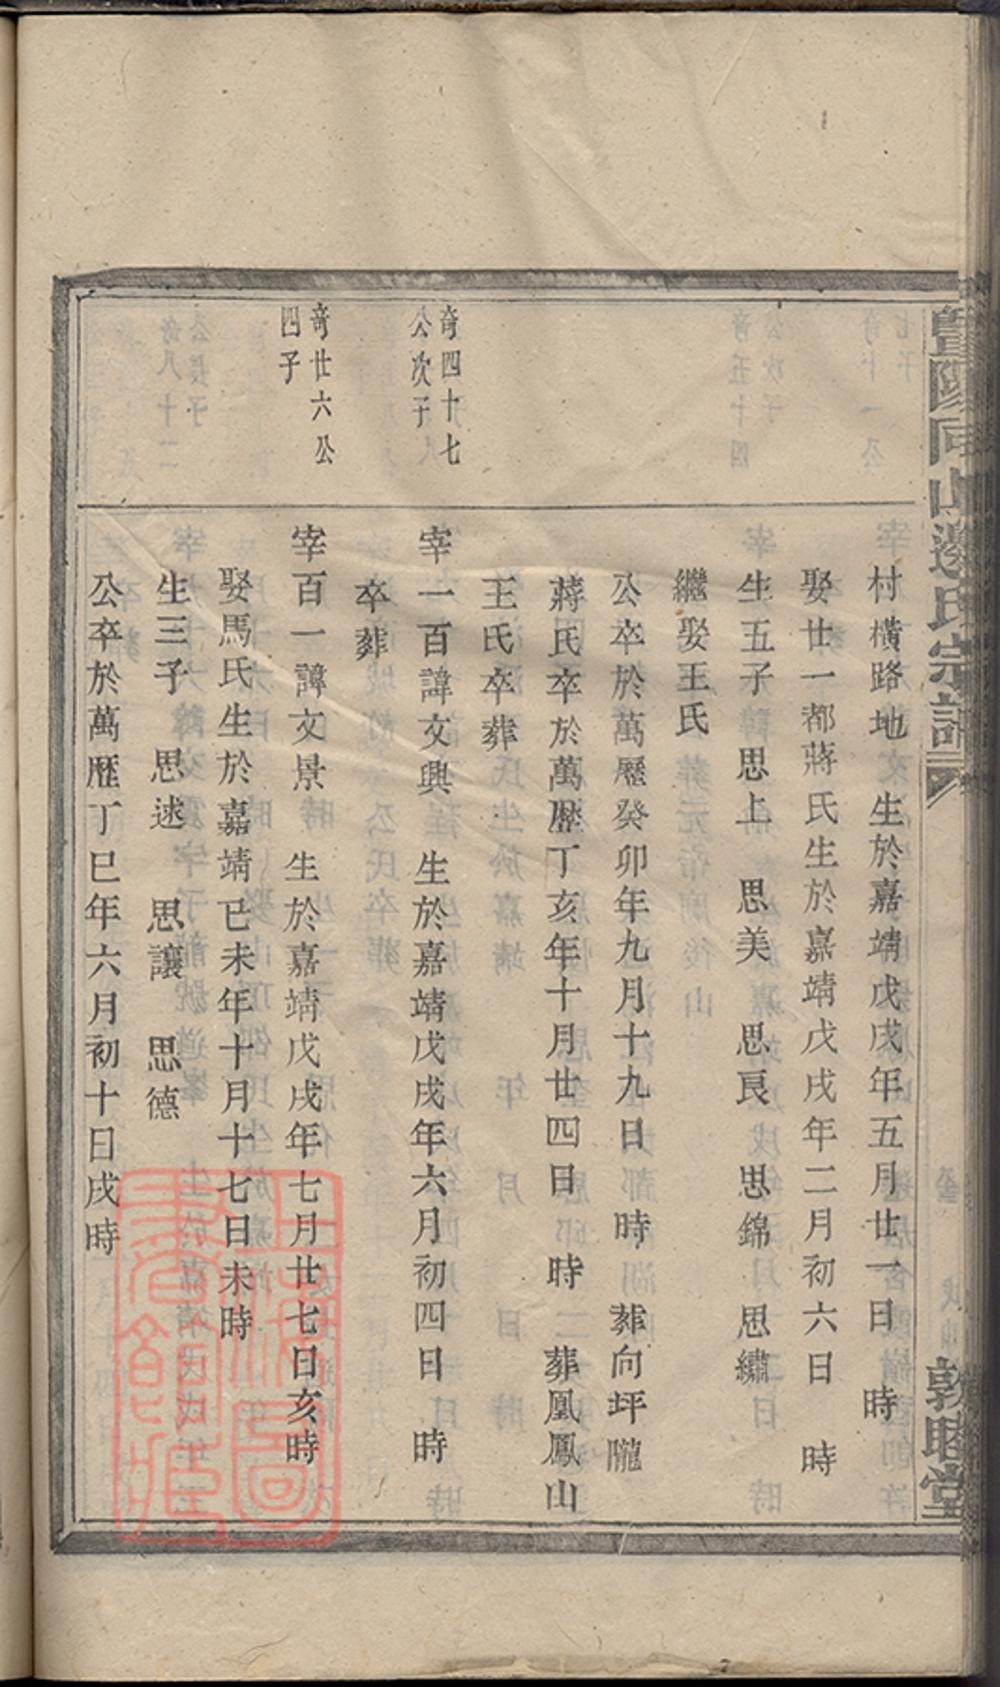 暨陽同山邊氏宗譜
敦睦堂
村橫路地　生於嘉靖戊戌年五月廿一日　時
娶廿一都蔣氏生於嘉靖戊戌年二月初六日　時
生五子　思上　思美　思良　思錦　思繡
繼娶王氏
公卒於萬曆癸卯年九月十九日　時　葬向坪隴
蔣氏卒於萬歷丁亥年十月廿四日　時　葬鳳鳳山
王氏卒葬
奇四十七
公次子
宰一百諱文興　生於嘉靖戊戌年六月初四日　時
卒葬
奇廿六公
四子
宰百一諱文景　生於嘉靖戊戌年七月廿七日亥時
娶馬氏生於嘉靖己未年十月十七日未時
生三子　思逑　思讓　思德
公卒於萬歷丁巳年六月初十日戌時
上海圖
書館藏